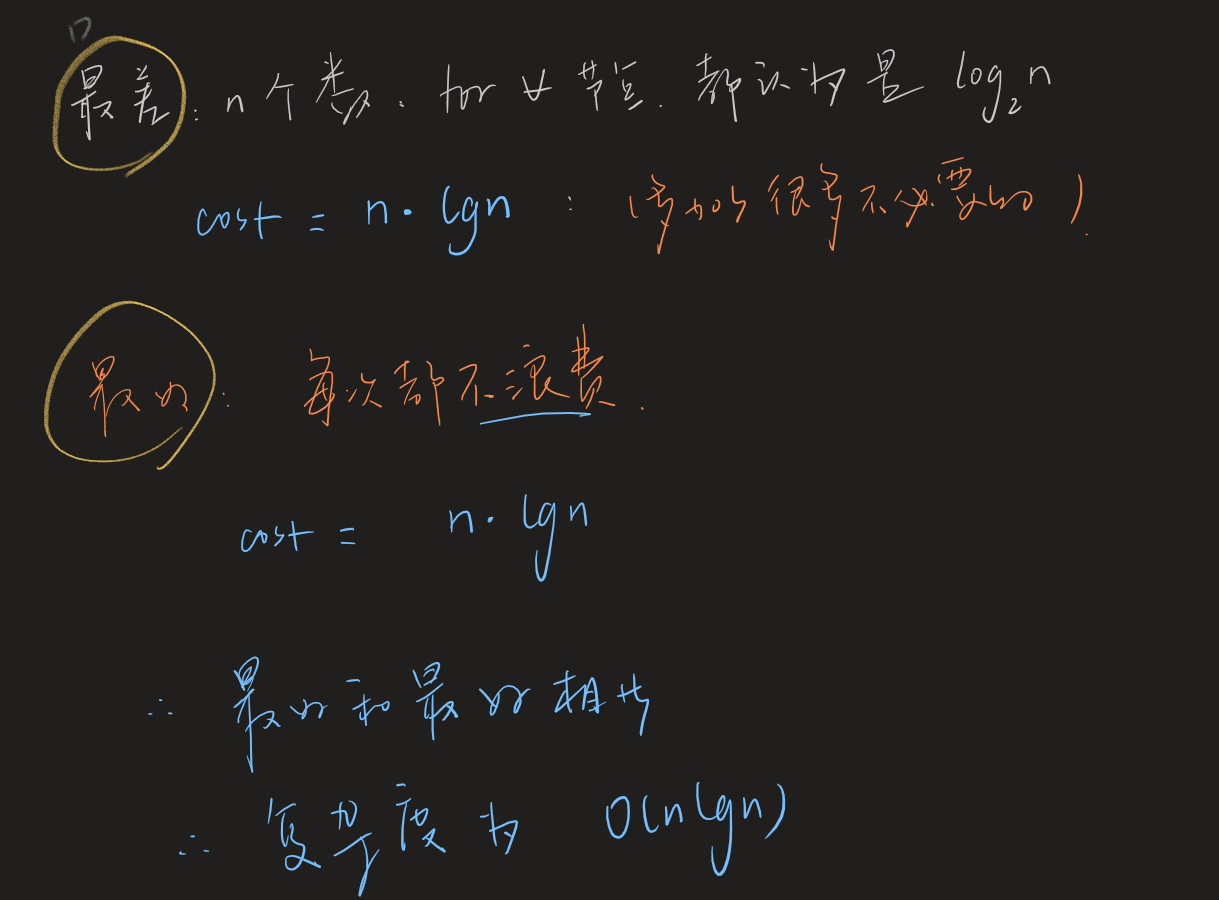 最差: n 个类. for 每节点. 都认为是 log₂n
cost = n · lgn : (多加了很多不必要的).
最好: 每次都不浪费.
cost = n · lgn
∴ 最好和最好相同
∴ 复杂度为 O(nlgn)